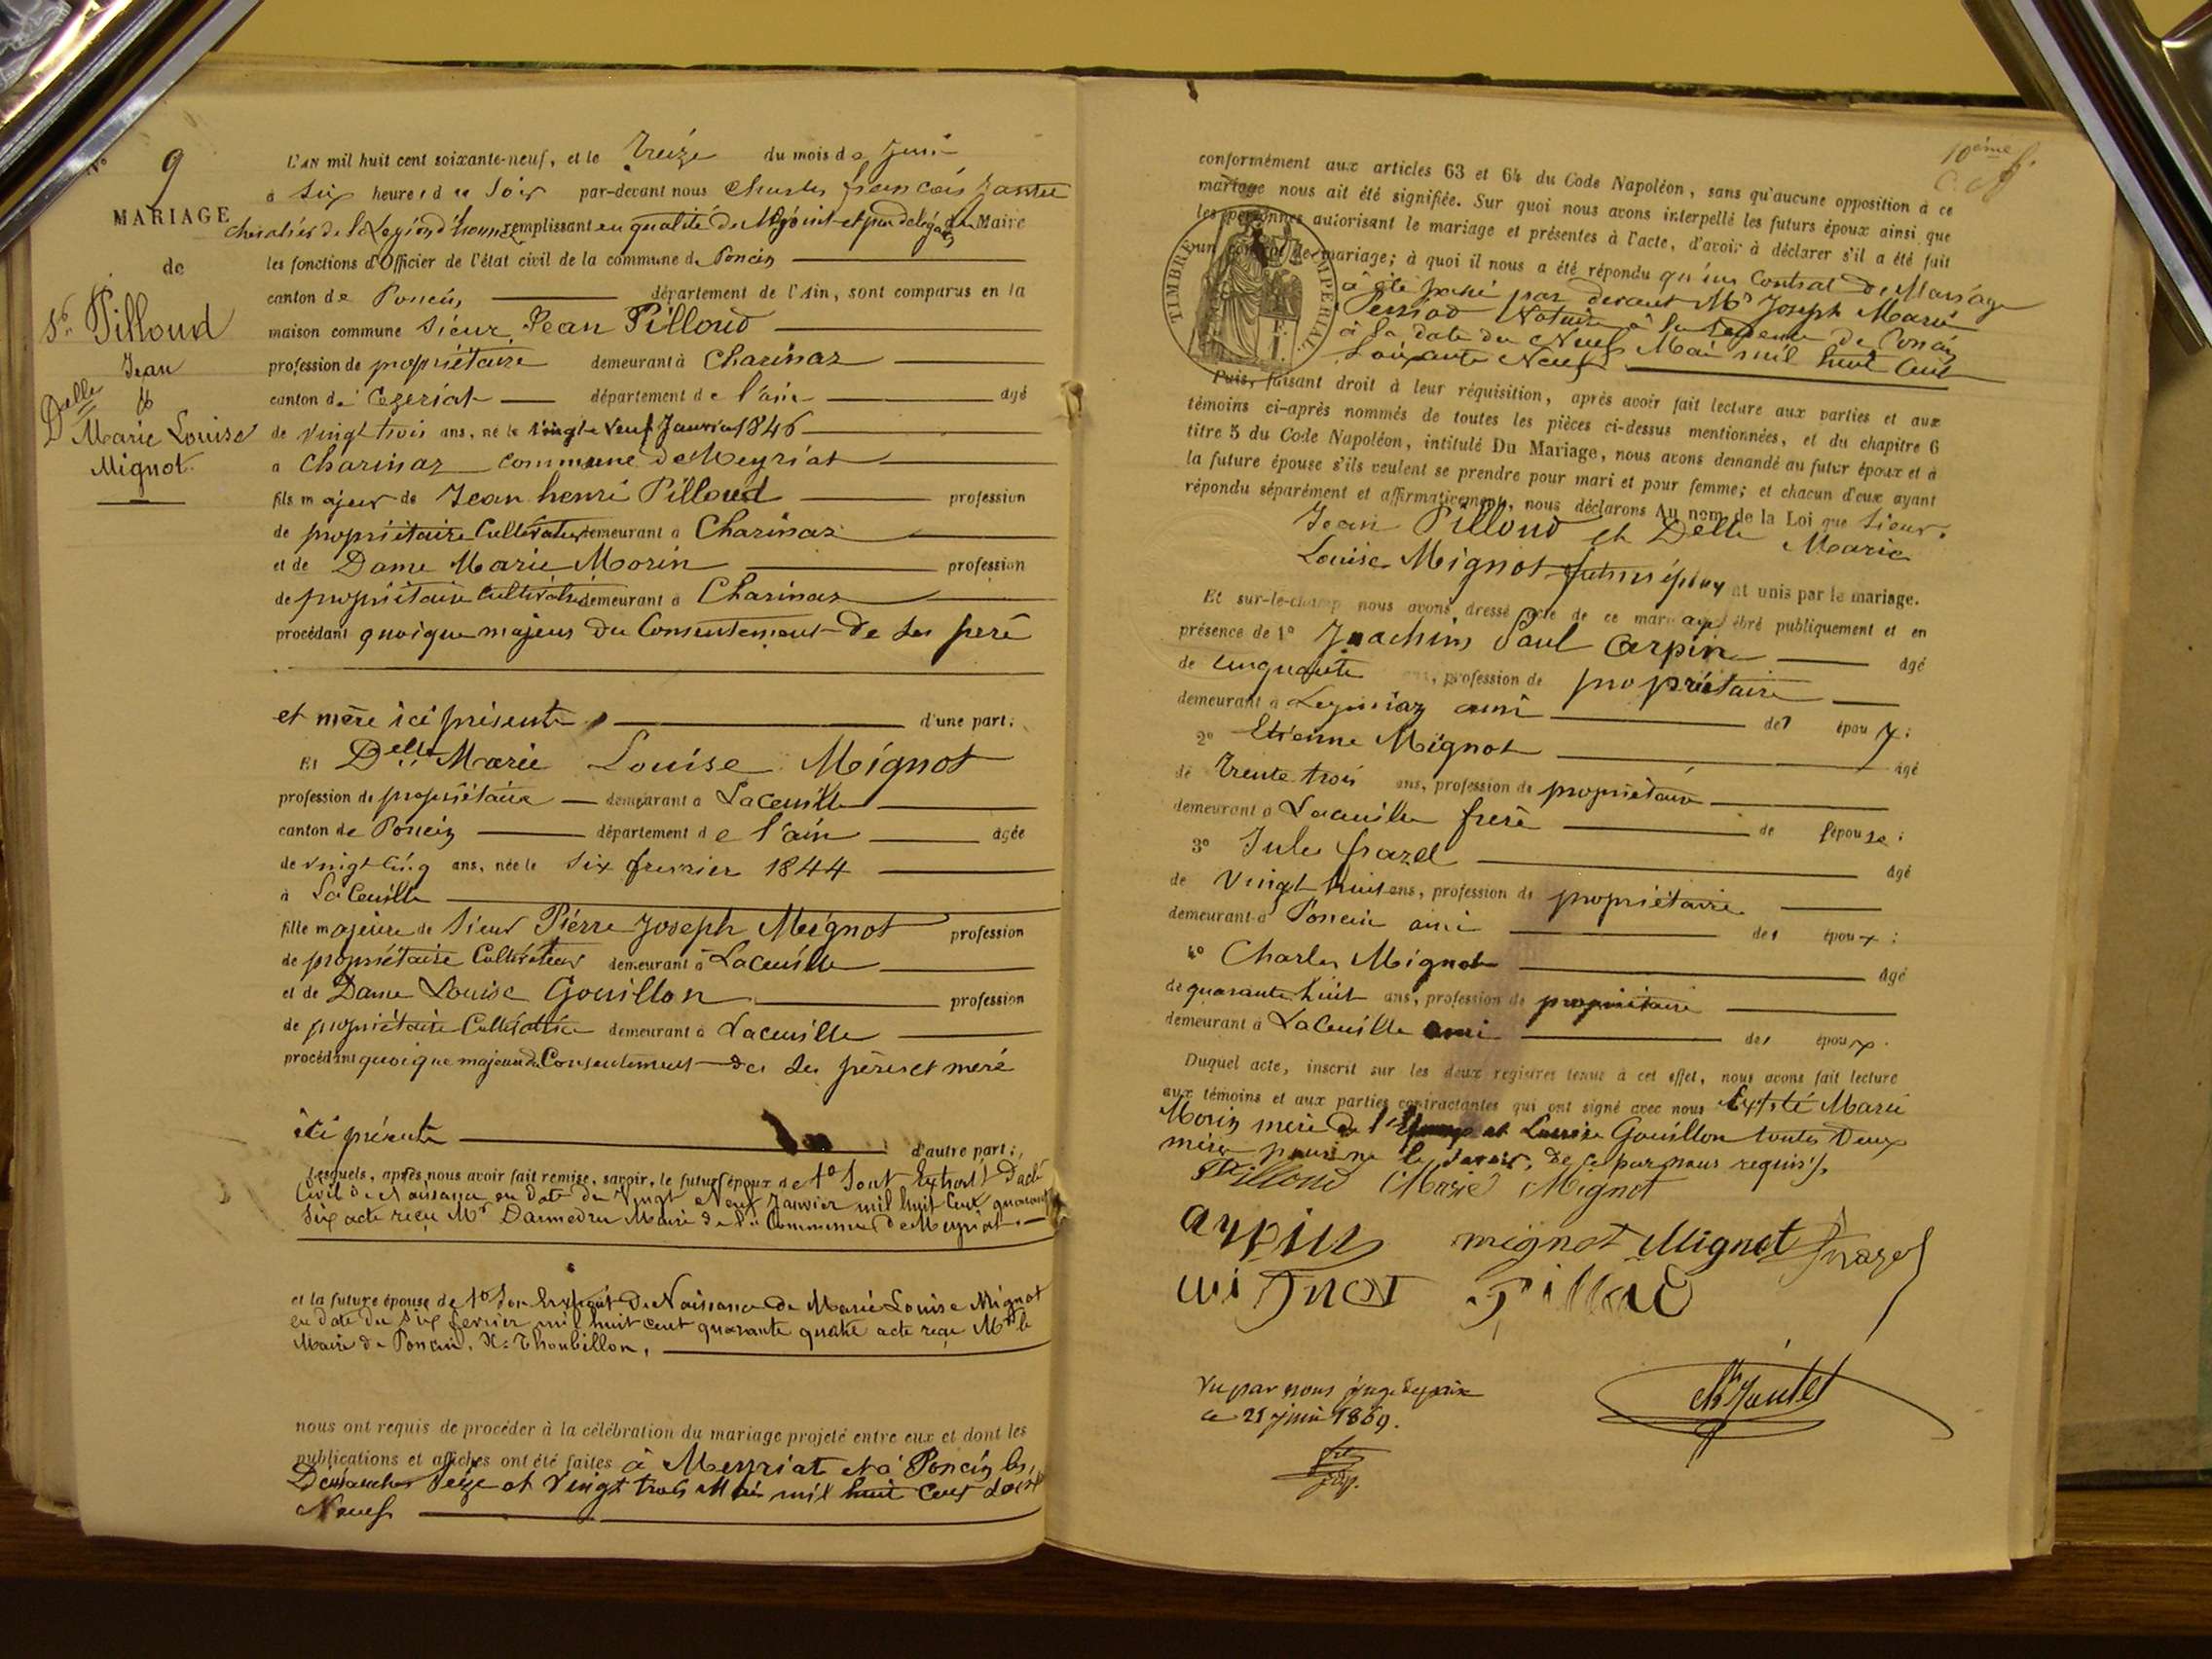 N° 9
MARIAGE
de
Sr Pilloud
Jean
&
Delle
Marie Louise
Mignot
L'AN mil huit cent soixante-neuf, et le Treize du mois de Juin
à Six heures d u Soir par-devant nous Charles françois
Chevalier de la Légion d'honneur remplissant en qualité de Adjoint et par délégation du Maire
les fonctions d'Officier de l'état civil de la commune de Poncin
canton de Poncin département de l'Ain, sont comparus en la
maison commune Sieur Jean Pilloud
profession de propriétaire demeurant à Charinaz
canton de Cezeriat département de l'ain âgé
de vingt trois ans, né le vingt Neuf Janvier 1846
à Charinaz commune de Meyriat
fils majeur de Jean henri Pilloud profession
de propriétaire Cultivateur demeurant à Charinaz
et de Dame Marie Morin profession
de propriétaire Cultivatrice demeurant à Charinaz
procédant quoique majeur du Consentement de ses peré
et mère ici présents d'une part;
Et Delle Marie Louise Mignot
profession de propriétaire demeurant à Laceuille
canton de Poncin département de l'ain âgée
de vingt cinq ans, née le Six fevrier 1844
à LaCeuille
fille majeure de Sieur Pierre Joseph Mignot profession
de propriétaire Cultivateur demeurant à Laceuille
et de Dame Louise Gouillon profession
de propriétaire Cultivatrice demeurant à Laceuille
procédant quoique majeure du Consentement de ses pères et meré
ici présents d'autre part;
Lesquels, après nous avoir fait remise, savoir, le futur époux de 1° Sont Extrait D'acte
Civil de Naissance en date du Vingt Neuf Janvier mil huit Cent quarante
Six acte reçu Mr Darmedru Maire de la Commune de Meyriat.
et la future épouse de 1° Son Extrait De Naissance de Marie Louise Mignot
en date du Six fevrier mil huit cent quarante quatre acte reçu Mr le
Maire de Poncin, Mr Thoubillon,
nous ont requis de procéder à la célébration du mariage projeté entre eux et dont les
publications et affiches ont été faites à Meyriat et à Poncin les
Dimanches Seize et Vingt trois Mai mil huit Cent Soixte
Neuf
10ème f.
conformément aux articles 63 et 64 du Code Napoléon, sans qu'aucune opposition à ce
mariage nous ait été signifiée. Sur quoi nous avons interpellé les futurs époux ainsi que
les personnes autorisant le mariage et présentes à l'acte, d'avoir à déclarer s'il a été fait
un contrat de mariage; à quoi il nous a été répondu qu'un Contrat de Mariage
à été passé par devant Me Joseph Marie
Perrod Notaire à la résidence de Poncin
à la date du Neuf Mai mil huit Cent
Soixante Neuf
TIMBRE IMPERIAL
Puis, faisant droit à leur réquisition, après avoir fait lecture aux parties et aux
témoins ci-après nommés de toutes les pièces ci-dessus mentionnées, et du chapitre 6
titre 5 du Code Napoléon, intitulé Du Mariage, nous avons demandé au futur époux et à
la future épouse s'ils veulent se prendre pour mari et pour femme; et chacun d'eux ayant
répondu séparément et affirmativement, nous déclarons Au nom de la Loi que Sieur
Jean Pilloud et Delle Marie
Louise Mignot futurs époux nt unis par le mariage.
Et sur-le-champ nous avons dressé acte de ce mariage célébré publiquement et en
présence de 1° Joachim Paul Carpin âgé
de cinquante ans, profession de propriétaire
demeurant à ami de l'époux;
2° Etienne Mignot âgé
de trente trois ans, profession de propriétaire
demeurant à Laceuille frerè de l'épouse;
3° Jules frazel âgé
de Vingt huit ans, profession de propriétaire
demeurant à Poncin ami de l'époux;
4° Charles Mignot âgé
de quarante huit ans, profession de propriétaire
demeurant à LaCeuille ami de l'époux.
Duquel acte, inscrit sur les deux registres tenus à cet effet, nous avons fait lecture
aux témoins et aux parties contractantes qui ont signé avec nous Excepté Marie
Morin mère de l'Epoux et Louise Gouillon toutes deux
mères pour ne le savoir, de ce par nous requis.
Pilloud Marie Mignot
arpin mignot Mignot frazel
mignot Pilloud
Vu par nous juge de paix
ce 21 juin 1869.